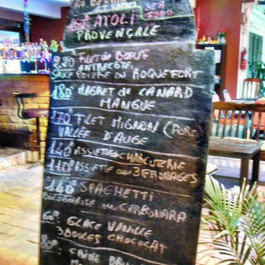 AÏOLI
PROVENÇALE
220 FILET DE BOEUF
ENTRECÔTE
SAUCE POIVRE OU ROQUEFORT
180 MAGRET DE CANARD
MANGUE
170 FILET MIGNON (PORC)
VALLÉE D'AUGE
140 ASSIETTE CHARCUTERIE
140 ASSIETTE DES 3 FROMAGES
140 SPAGHETTI
BOLOGNAISE OU CARBONARA
60 GLACE VANILLE
3 BOULES CHOCOLAT
80